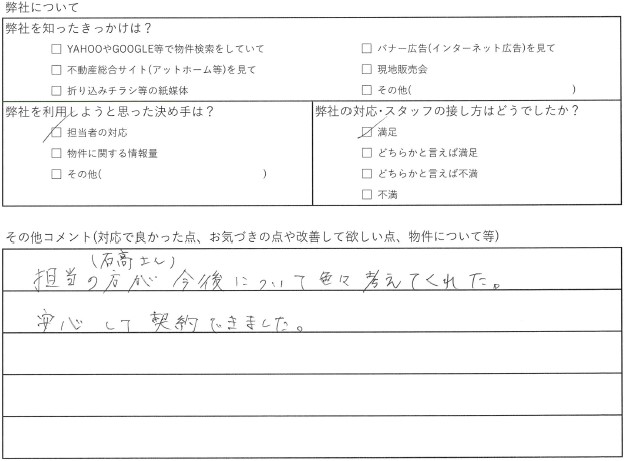 弊社について
弊社を知ったきっかけは？
□ YAHOOやGOOGLE等で物件検索をしていて
□ バナー広告(インターネット広告)を見て
□ 不動産総合サイト(アットホーム等)を見て
□ 現地販売会
□ 折り込みチラシ等の紙媒体
□ その他( )
弊社を利用しようと思った決め手は？
□ 担当者の対応
□ 物件に関する情報量
□ その他( )
弊社の対応・スタッフの接し方はどうでしたか？
□ 満足
□ どちらかと言えば満足
□ どちらかと言えば不満
□ 不満
その他コメント(対応で良かった点、お気づきの点や改善して欲しい点、物件について等)
(石高さん)
担当の方が今後について色々考えてくれた。
安心して契約できました。